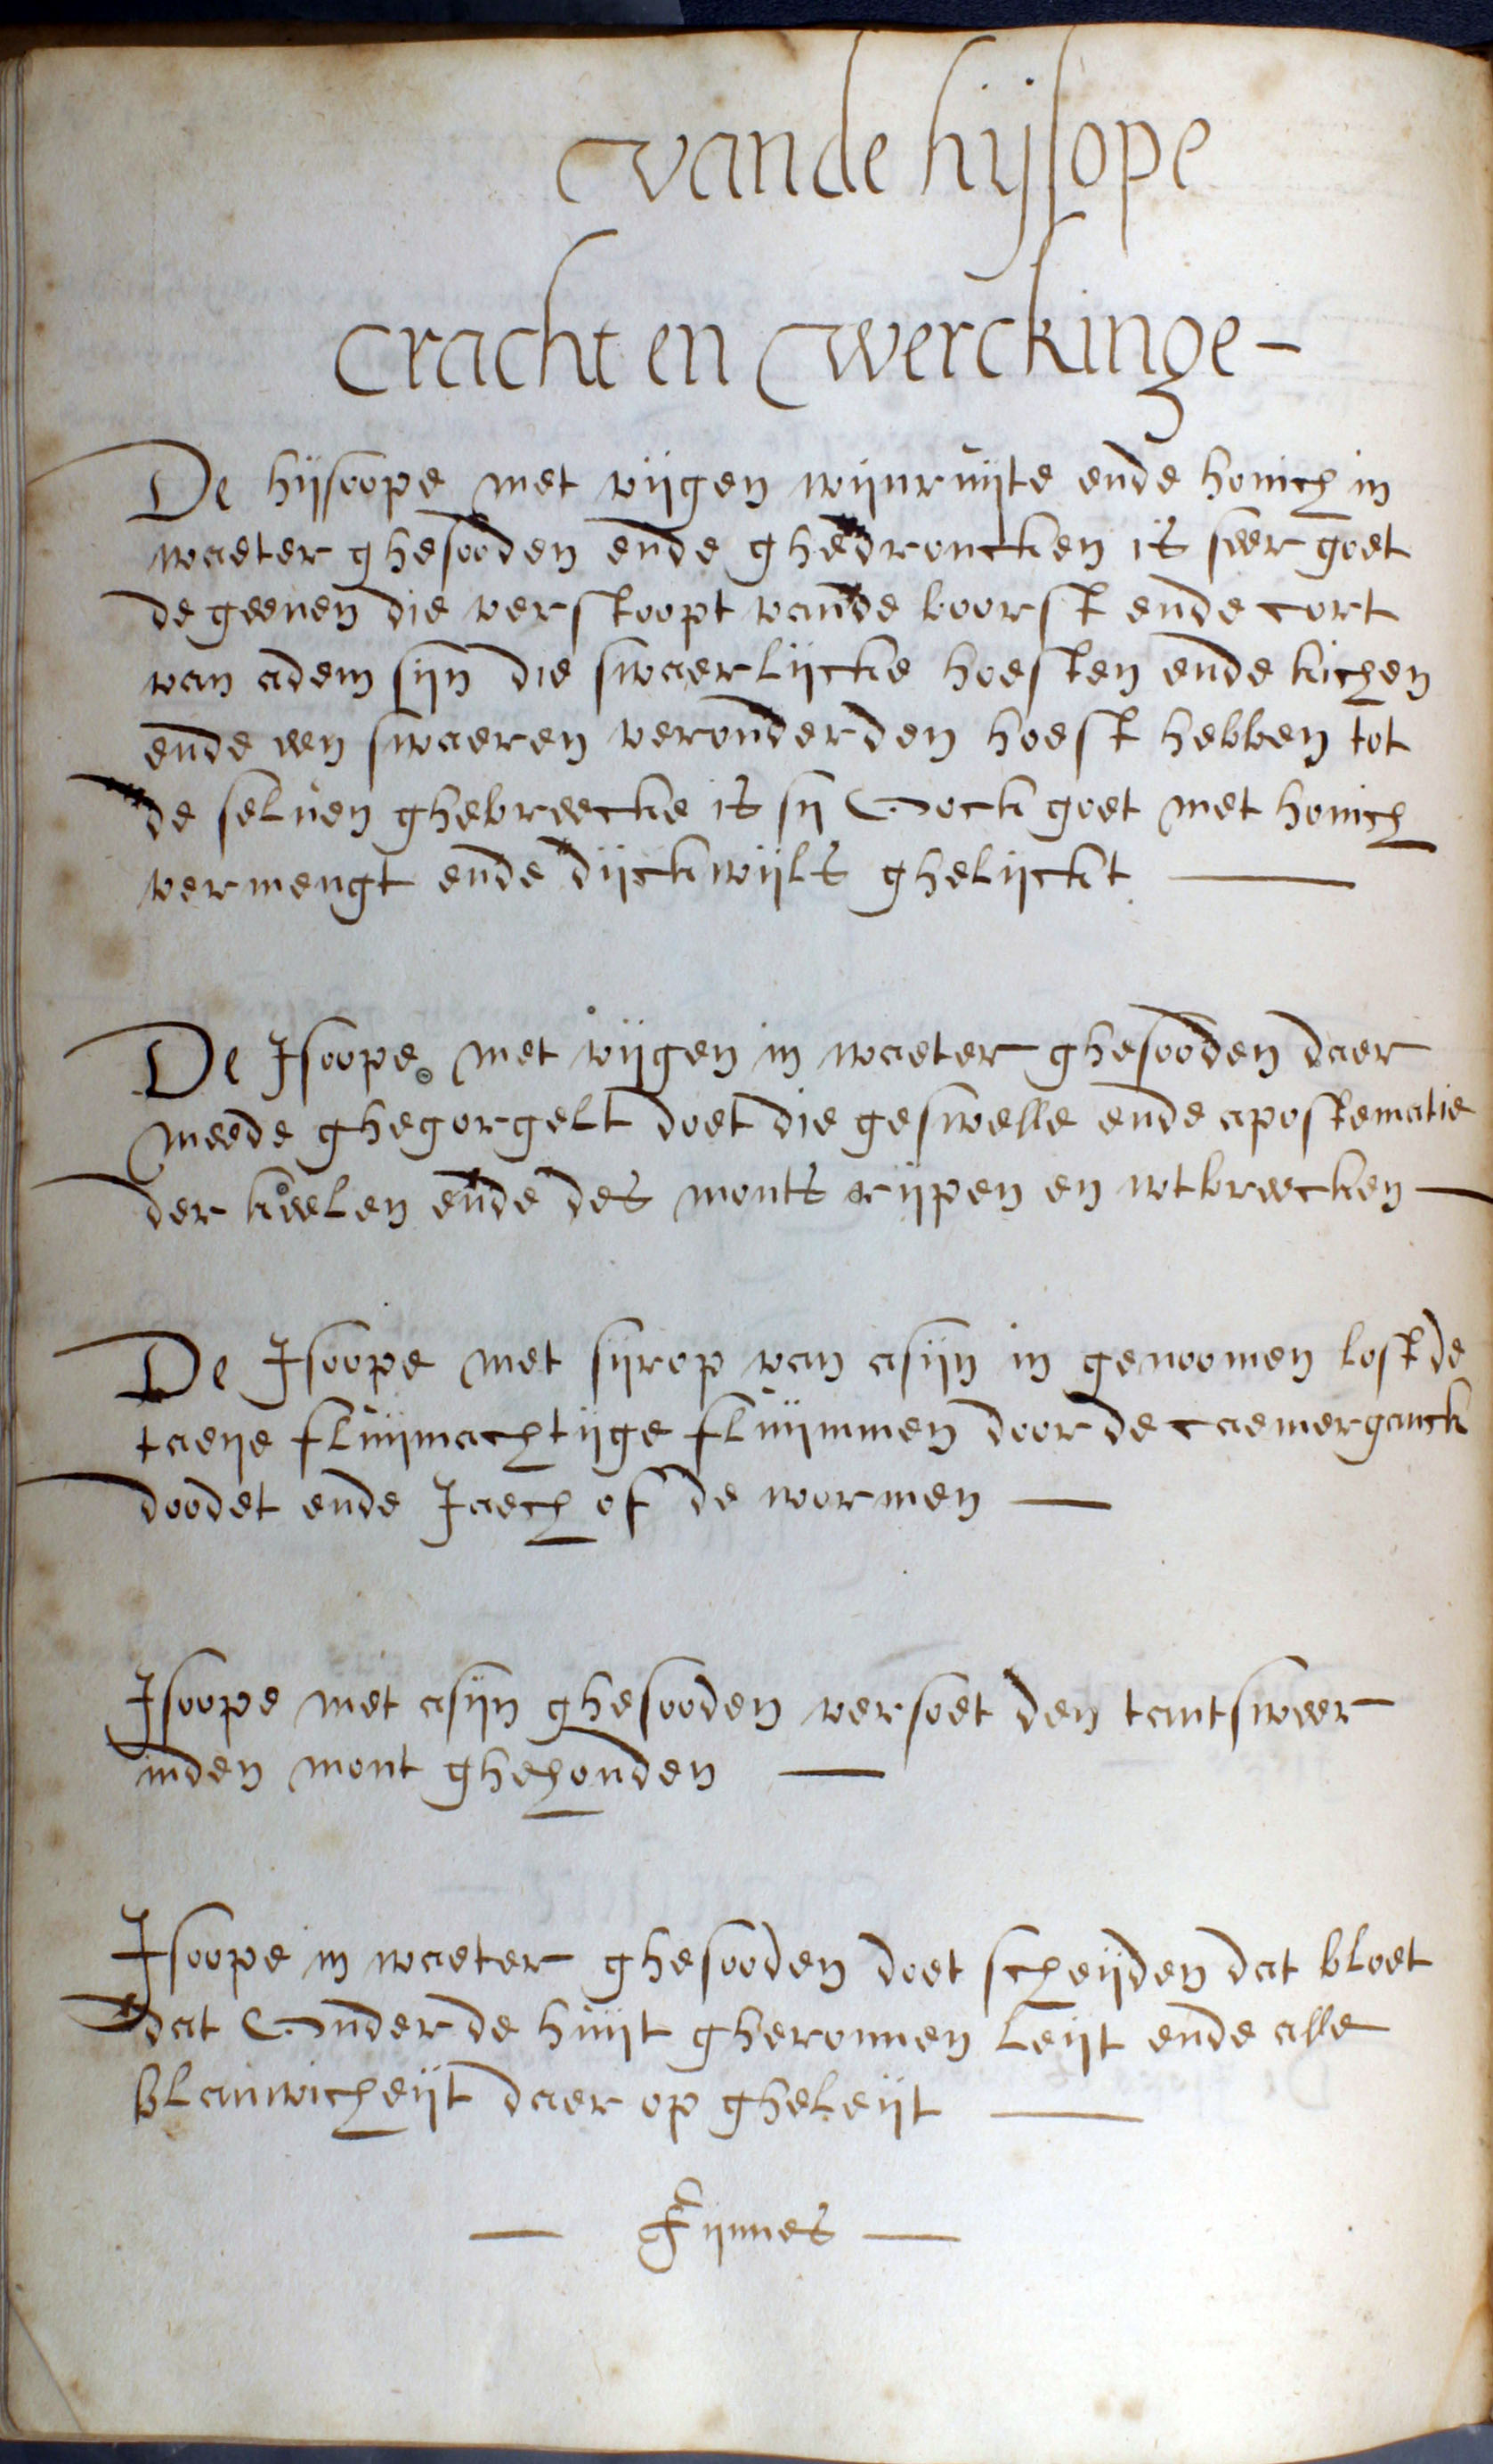 vande hijsope
cracht en werckinge -
De hijsoope met vijgen wijnruijte ende honich in
waeter ghesooden ende ghedroncken is seer goet
de geenen die verstoopt vande boorst ende cort
van adem sijn die swaerlijcke hoesten ende kichen
ende een swaeren verouderden hoest hebben tot
de selven ghebreecke is sij oock goet met honich
vermengt ende dijckwijls ghelijckt
De Isoope met vijgen in waeter ghesooden daer
meede ghegorgelt doet die geswelle ende apostematie
der keelen ende des monts rijpen en wtbreecken
De Isoope met sijrop van asijn in genoomen lost de
taeije fluijmachtijge fluijmmen door de caemerganck
doodet ende Jaech of de wormen
Isoope met asijn ghesooden versoet den tantsweer
inden mont ghehouden
Isoope in waeter ghesooden doet scheijden dat bloet
dat onder de huijt gheronnen leijt ende alle
blauwicheijt daer op gheleijt
Fijnnes